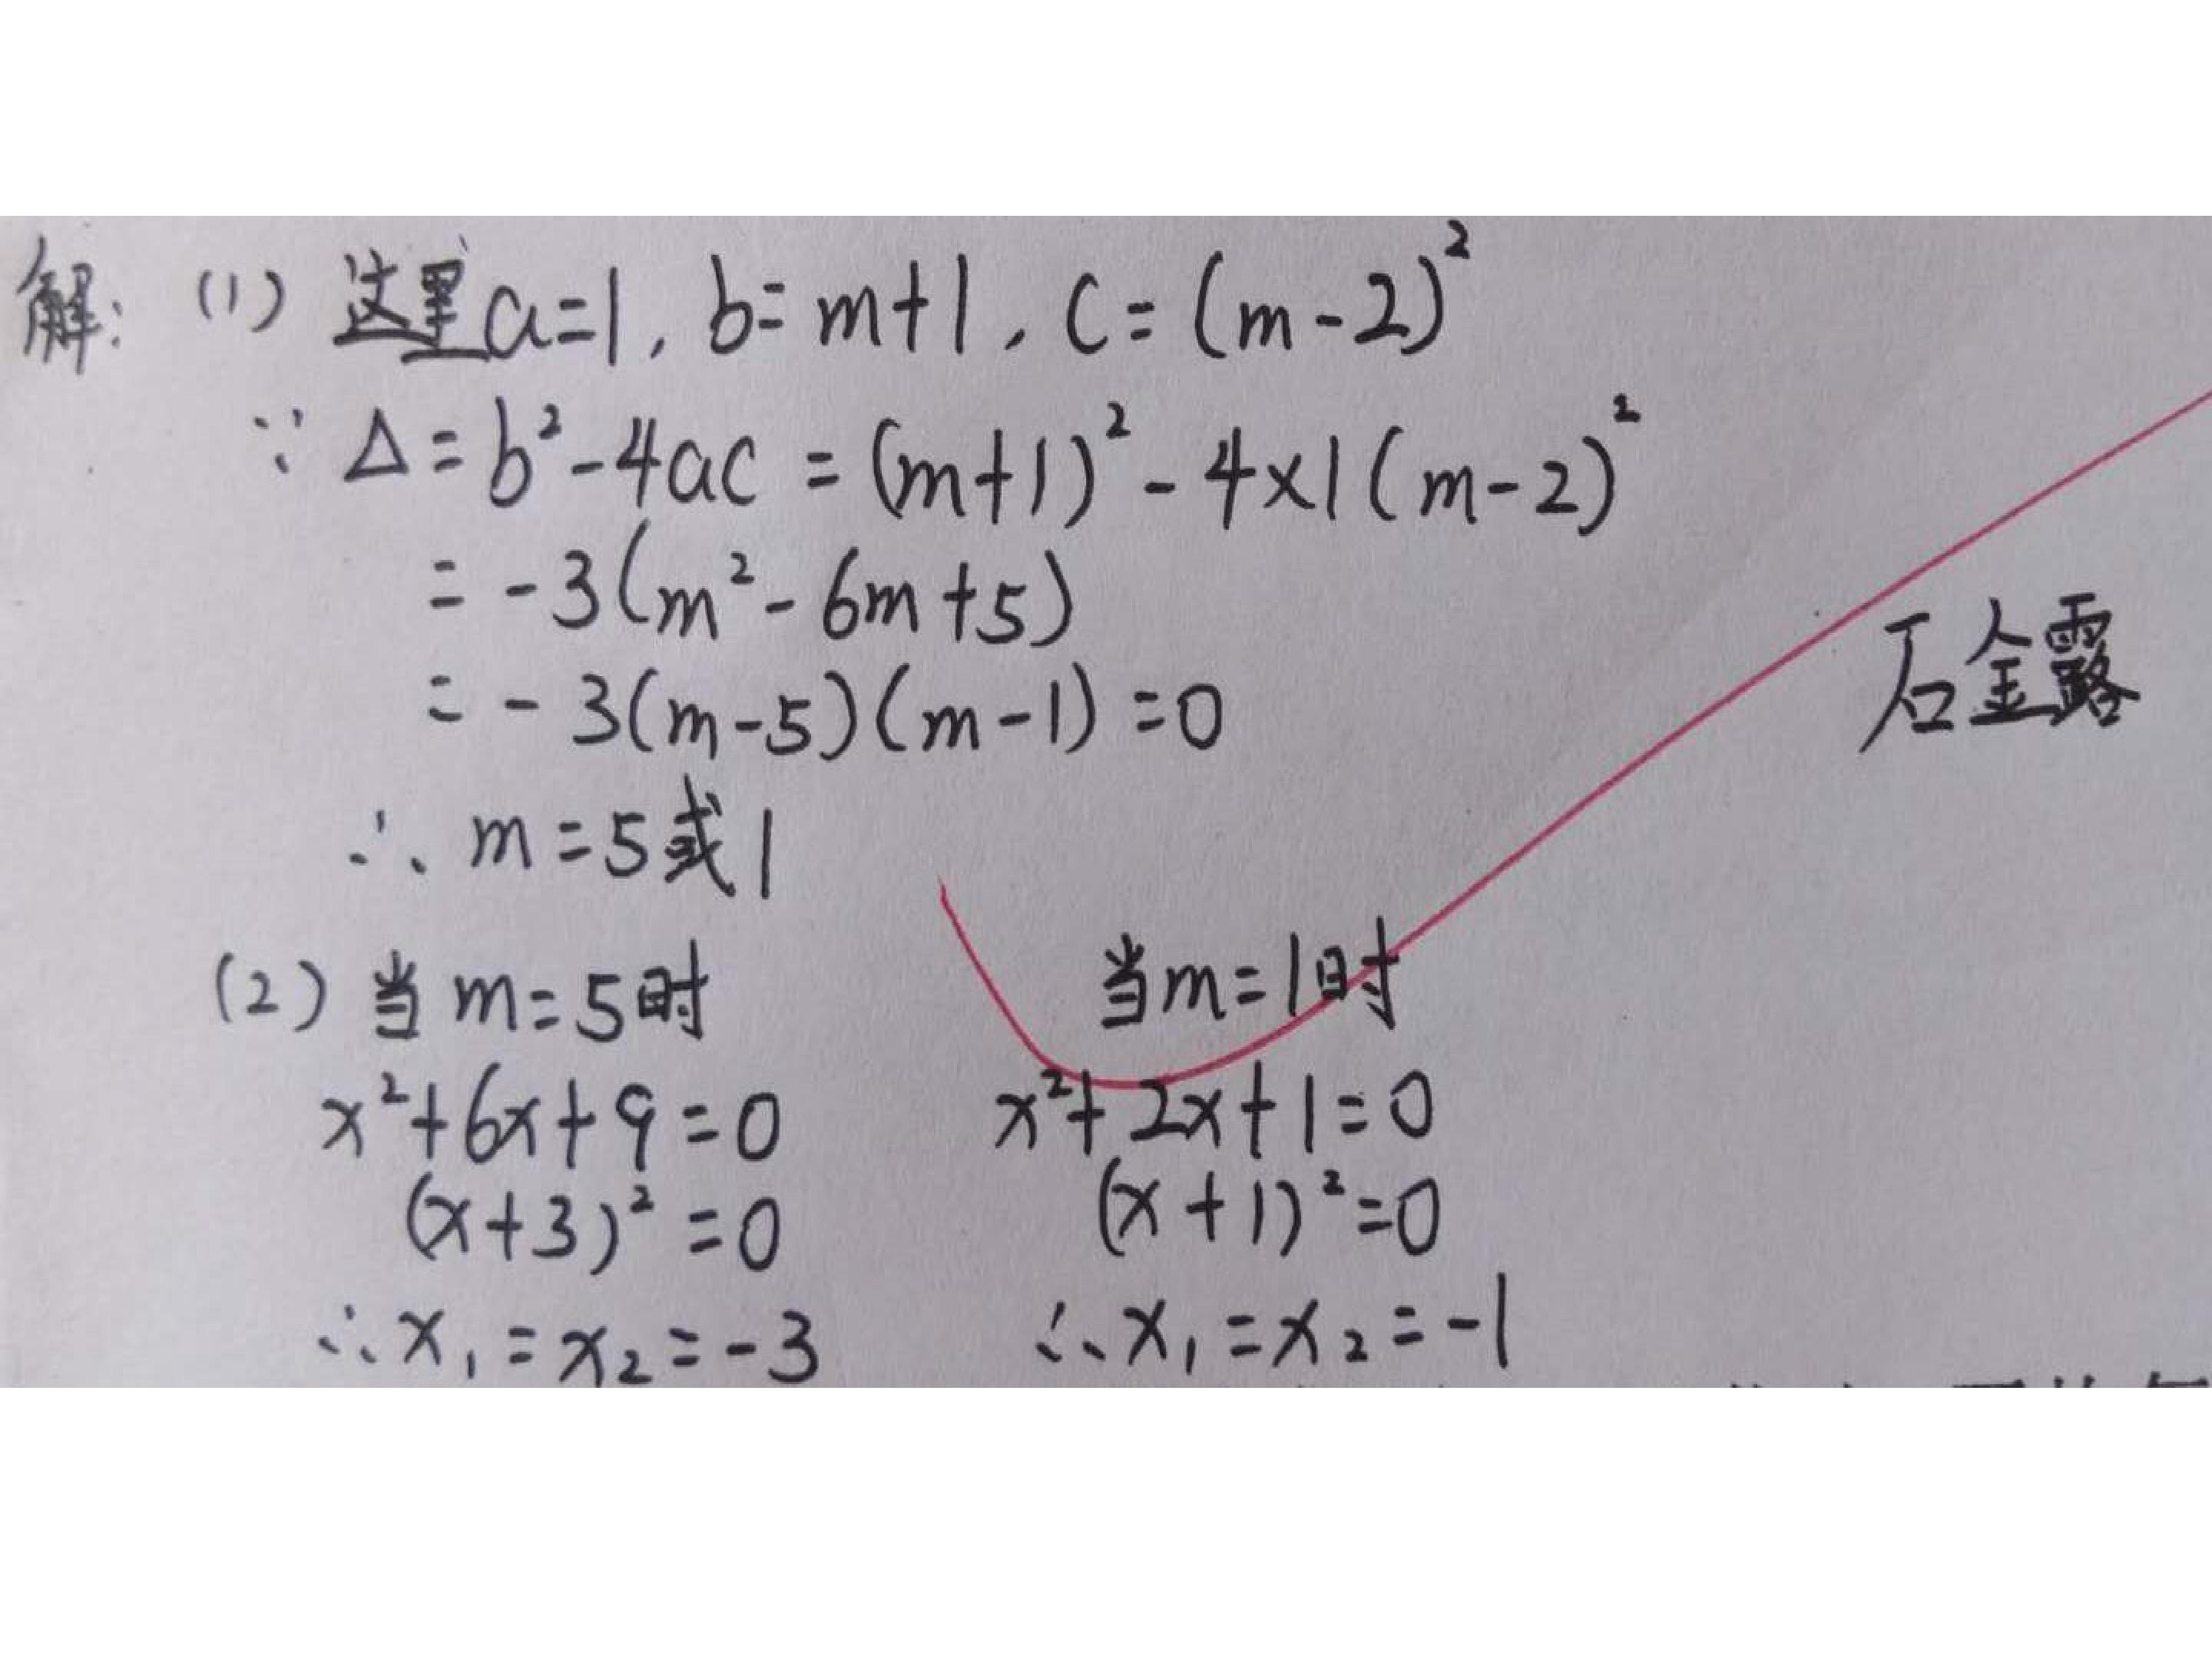 解: (1) 这里a=1, b=m+1, c=(m-2)²
∵ Δ=b²-4ac=(m+1)²-4×1(m-2)²
=-3(m²-6m+5)
=-3(m-5)(m-1)=0
石金露
∴ m=5或1
(2) 当m=5时
x²+6x+9=0
(x+3)²=0
∴x₁=x₂=-3
当m=1时
x²+2x+1=0
(x+1)²=0
∴x₁=x₂=-1